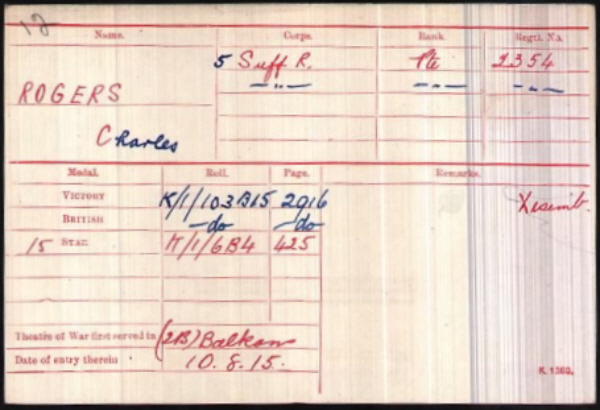 12
Name. Corps. Rank. Regtl. No.
5 Suff R. Pte 2354
— „ — — „ — — „ —
ROGERS
Charles
Medal. Roll. Page. Remarks.
VICTORY K/1/103B15 2916 Disemb.
BRITISH —do —do
15 STAR K/1/6B4 425
Theatre of War first served in (2B) Balkans
Date of entry therein 10.8.15.
K. 1380.